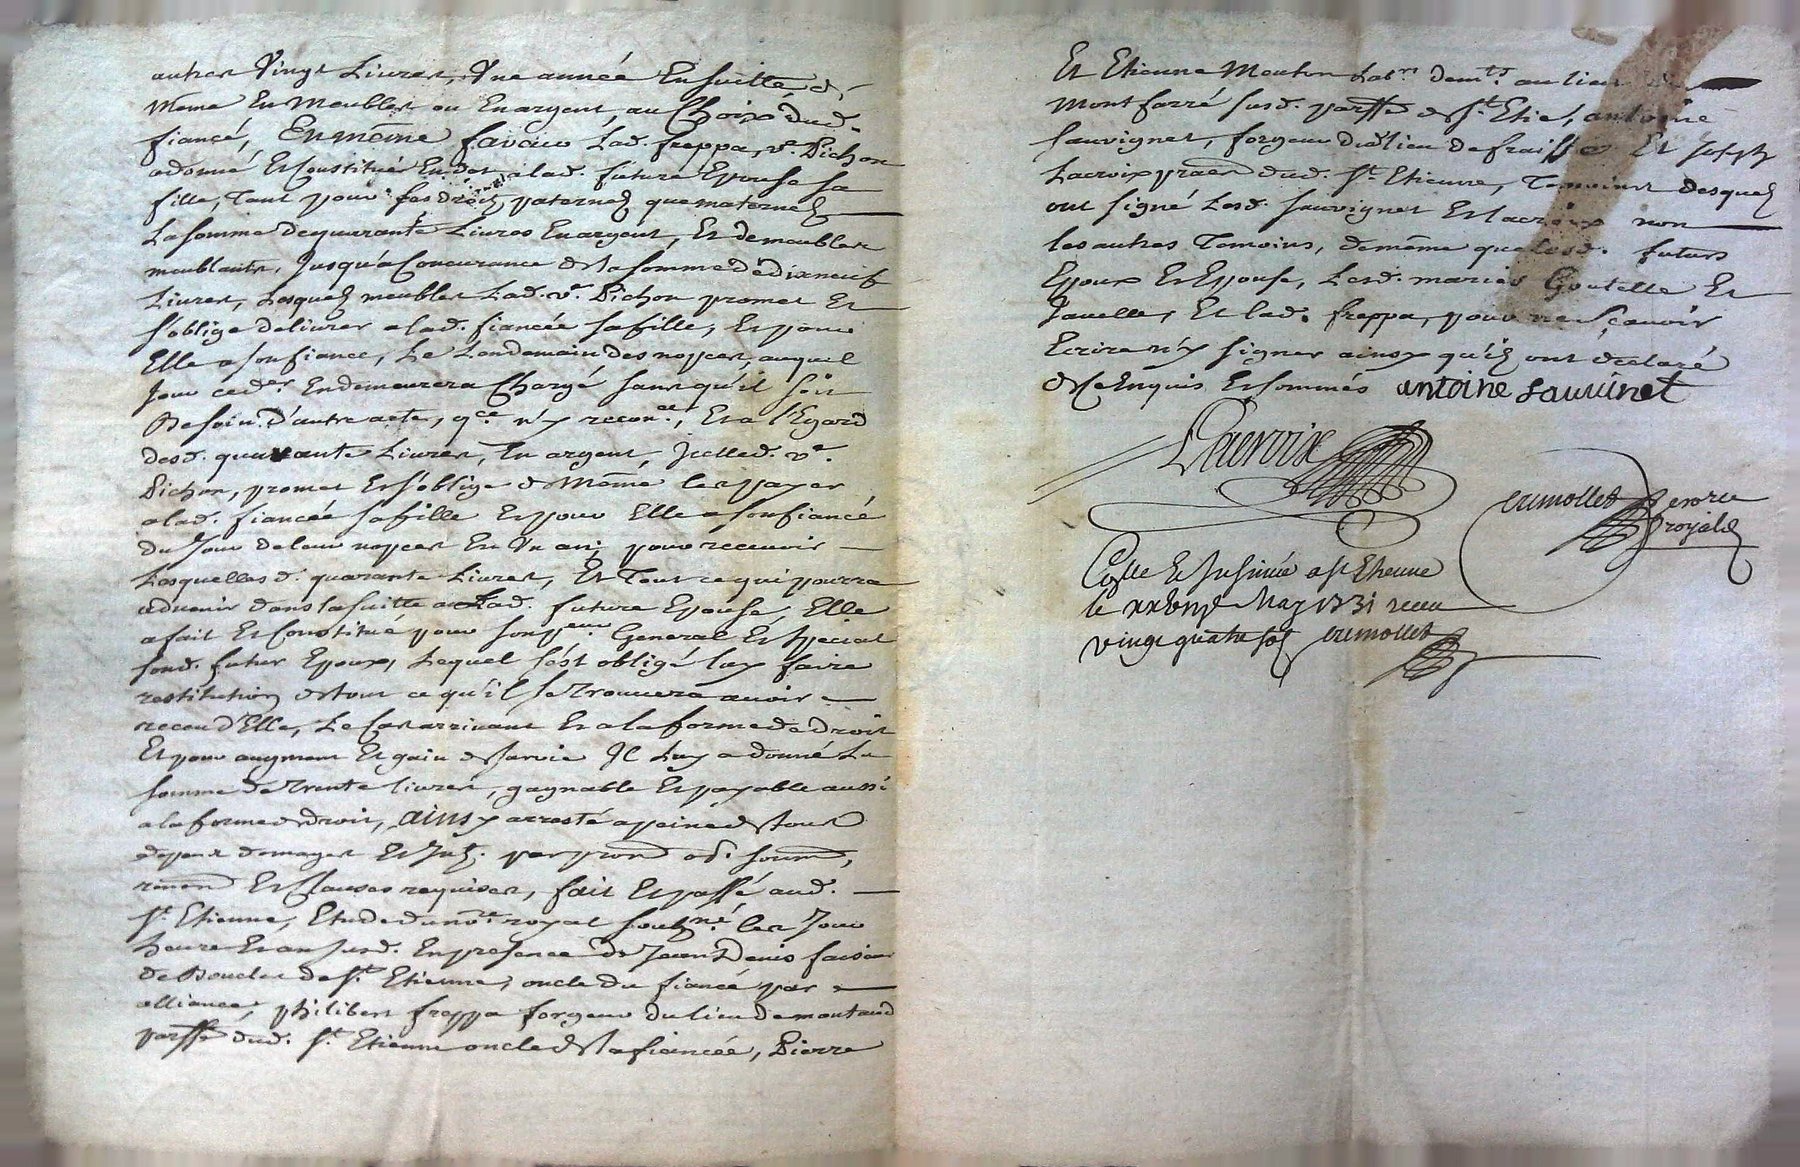 autres Vingt Livres, Une année Ensuitte, de
Même En Meubles ou En argent, au Choix dud.
fiancé, En même faveur Lad. freppa, ve. Pichon
a donné Et Constitué En dot a lad. future Epouse sa
fille, Tant pour ses droits paternels que maternels
La somme de quarante Livres En argent, Et de meubles
meublants, Jusqu'a Concurance de la somme de dixneuf
Livres, Lesquels meubles Lad. ve. Pichon promet Et
s'oblige delivrer a lad. fiancée sa fille, Et pour
Elle a son fiancé, Le Landemain des nopces, auquel
Jour ced.er En demeurera Chargé sans qu'il soit
Besoin d'autre acte, qce. n'y recon.ce, Et a l'Egard
desd. quarante Livres, En argent, Icelle d. ve.
Pichon, promet Et s'oblige de Même les payer
a lad. fiancée sa fille Et pour Elle a son fiancé
du Jour de leur nopces En Un an; pour recevoir
Lesquelles d. quarante Livres, Et Tout ce qui pourra
advenir dans la suitte a Lad. future Epouse, Elle
a fait Et Constitué pour son peur. General Et special
sond. futur Epoux, Lequel s'est obligé luy faire
restitution de tout ce qu'il se Trouvera avoir
receu d'Elle, Le Cas arrivant Et a la forme de droit
Et pour augment Et gain de survie Il Luy a donné La
somme de Trente livres, gagnable Et payable aussi
a la forme de droit, ainsy arresté a peine de tous
depens domages Et Int. par prom. obl. soum.,
renon. Et Clauses requises, fait Et passé aud.
St. Etienne, Etude du nore. royal soubs.né. les Jour
heure Et an susd. En presence de Jean Denis faiseur
de Boucles de St. Etienne, oncle du fiancé par
alliance, philibert freppa forgeur du lieu de montaud
parsse dud. St. Etienne oncle de la fiancée, Pierre
Et Etienne Mouton Labrs demts. au lieu de
Montferré susd. parsse de St. Etie., antoine
Sauvignet, forgeur dud. lieu de fraisses Et Joseph
Lacroix praen dud. St. Etienne, Temoins desquels
ont signé Lesd. Sauvignet Et Lacroix non
les autres Temoins, de même que lesd. futurs
Epoux Et Epouse, Lesd. mariés Goutelle Et
Javelle, Et lad. freppa, pour ne Sçavoir
Ecrire n'y signer ainsy qu'ils ont declaré
de Ce Enquis Et sommés antoine Sauvinet
Lacroix
crimollet nore
royal
Collé Et Insinué a St Etienne
le May 1731 receu
vingt quatre sols crimollet